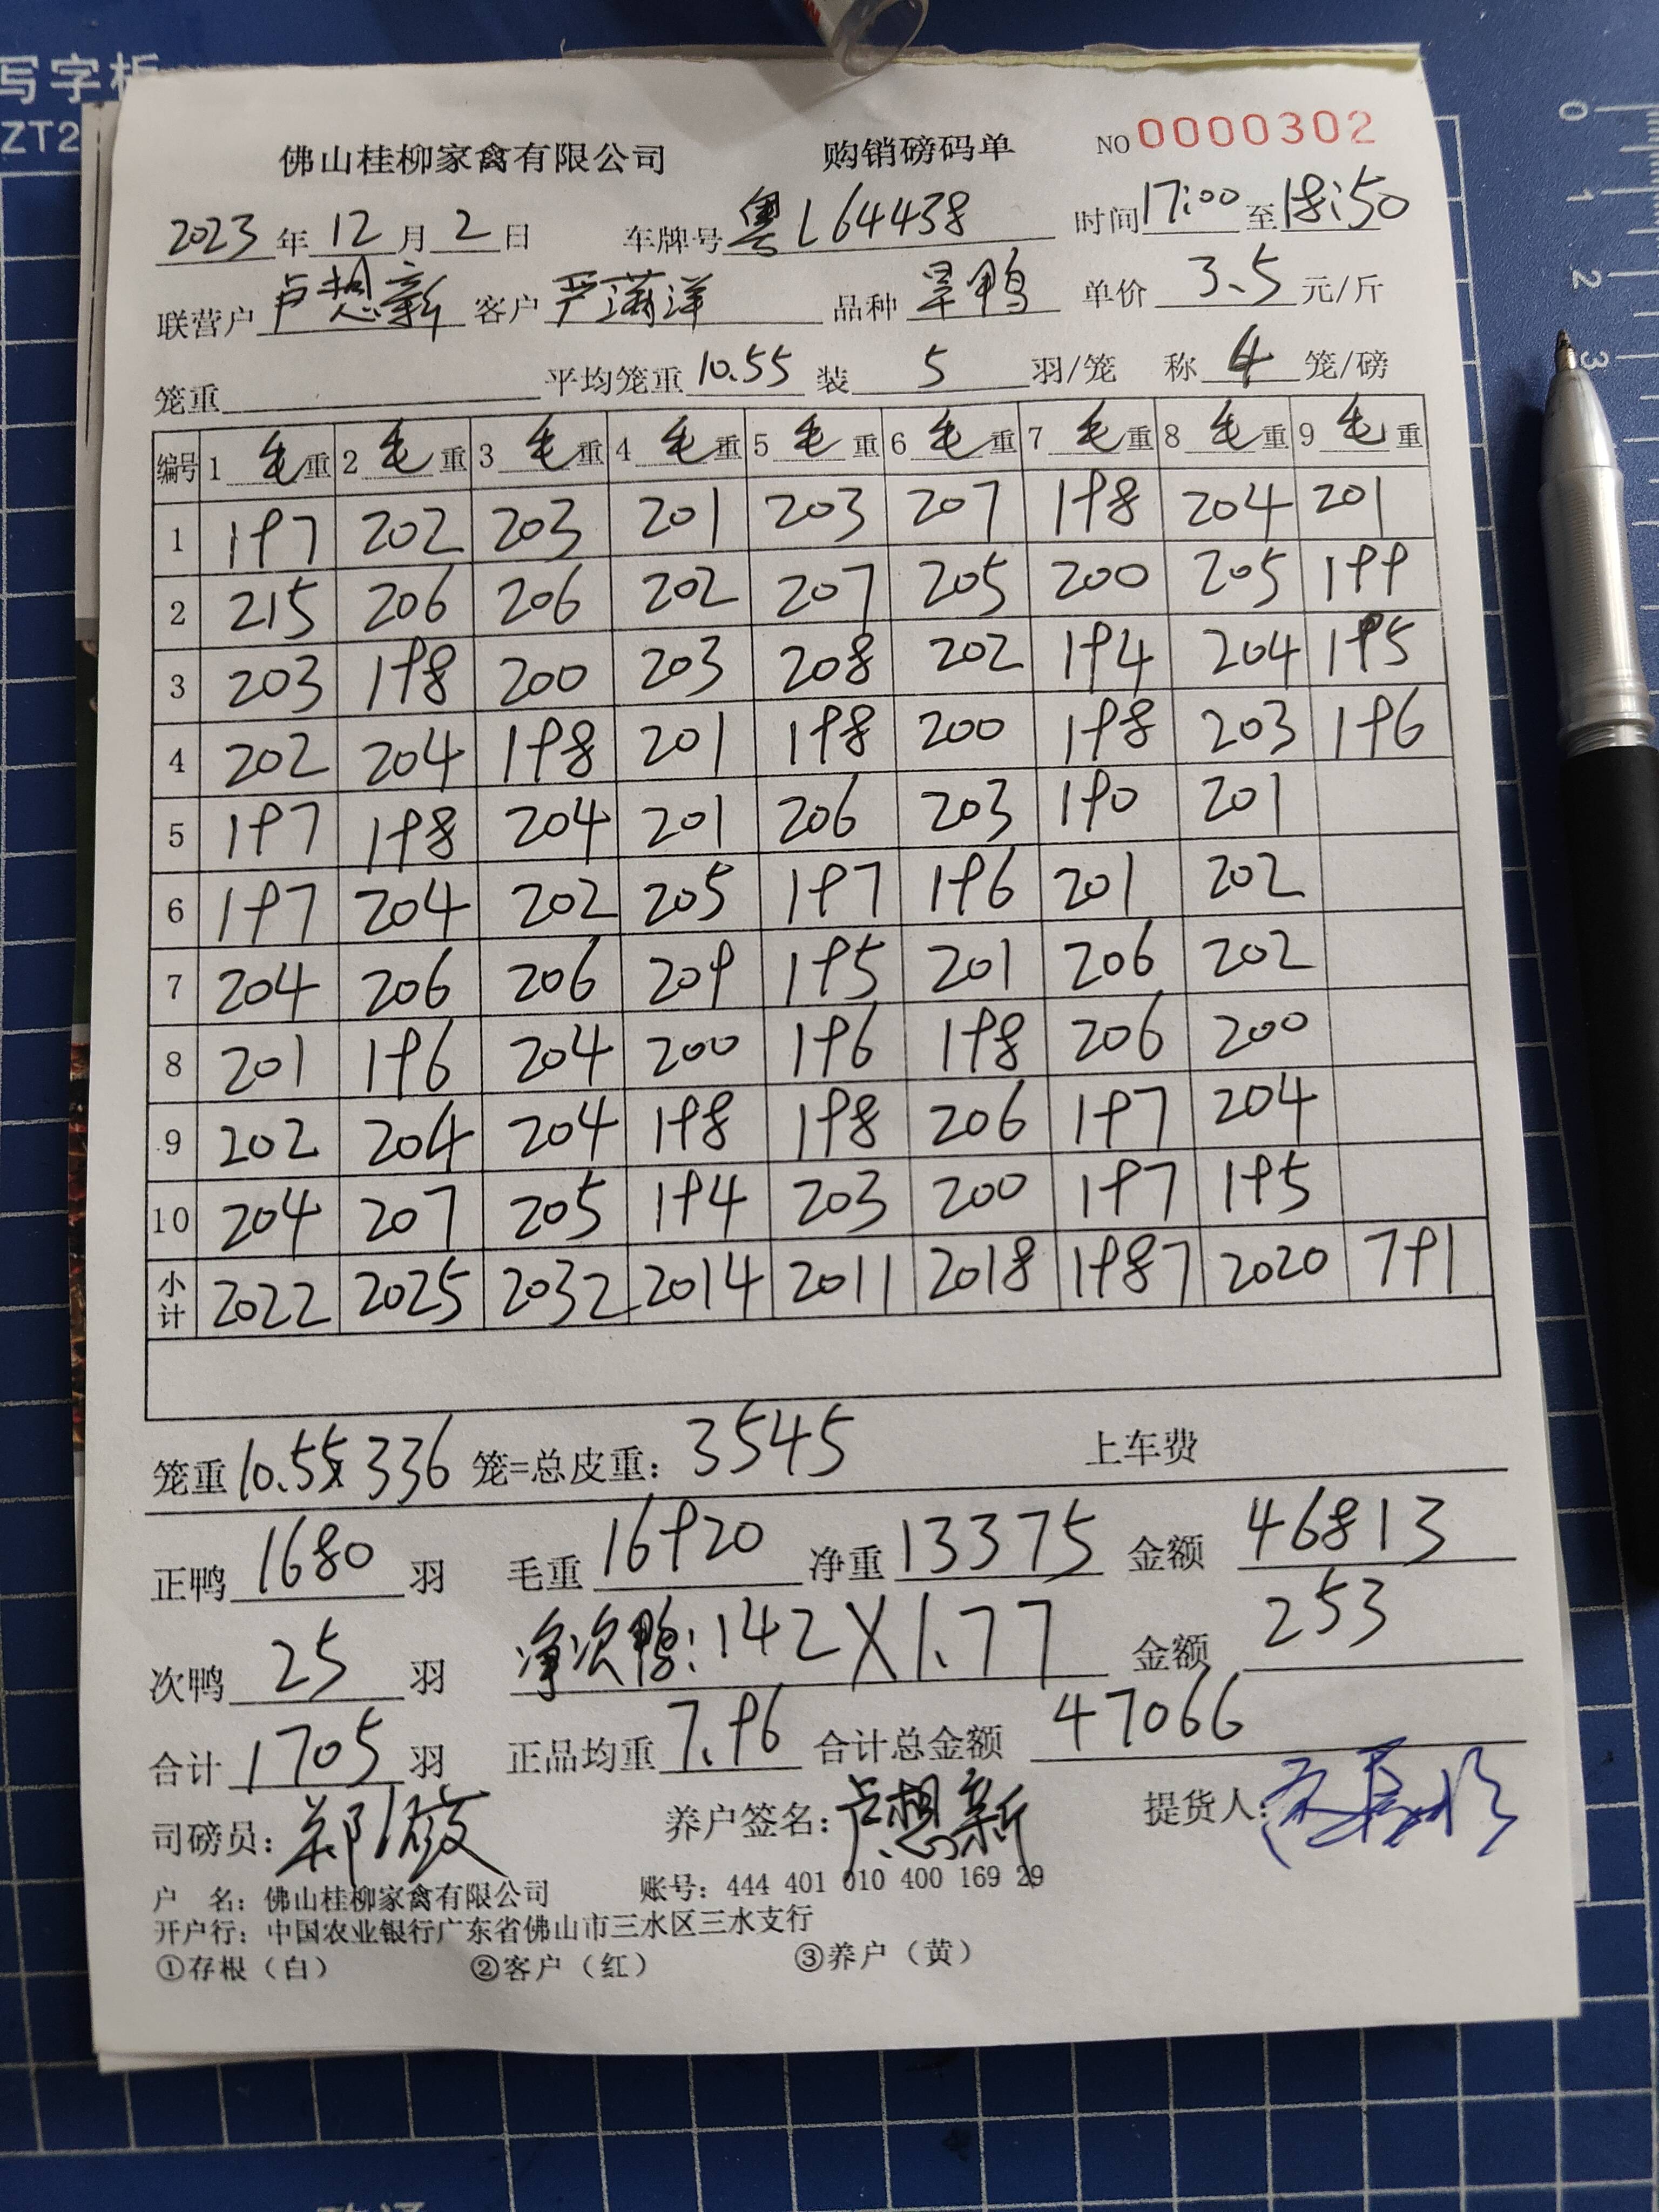 写字板
ZT2
0
1
2
3
佛山桂柳家禽有限公司 购销磅码单 NO 0000302
2023 年 12 月 2 日 车牌号 粤L64438 时间 17:00 至 18:50
联营户 卢想新 客户 严满洋 品种 旱鸭 单价 3.5 元/斤
笼重 平均笼重 10.55 装 5 羽/笼 称 4 笼/磅
编号 1 毛重 2 毛重 3 毛重 4 毛重 5 毛重 6 毛重 7 毛重 8 毛重 9 毛重
1 197 202 203 201 203 207 198 204 201
2 215 206 206 202 207 205 200 205 199
3 203 198 200 203 208 202 194 204 195
4 202 204 198 201 198 200 198 203 196
5 197 198 204 201 206 203 190 201
6 197 204 202 205 197 196 201 202
7 204 206 206 209 195 201 206 202
8 201 196 204 200 196 198 206 200
9 202 204 204 198 198 206 197 204
10 204 207 205 194 203 200 197 195
小计 2022 2025 2032 2014 2011 2018 1987 2020 791
笼重 10.55x 336 笼=总皮重: 3545 上车费
正鸭 1680 羽 毛重 16920 净重 13375 金额 46813
次鸭 25 羽 净次鸭: 142X1.77 金额 253
合计 1705 羽 正品均重 7.96 合计总金额 47066
司磅员: 养户签名: 卢想新 提货人:
户 名: 佛山桂柳家禽有限公司 账号: 444 401 010 400 169 29
开户行: 中国农业银行广东省佛山市三水区三水支行
①存根（白） ②客户（红） ③养户（黄）